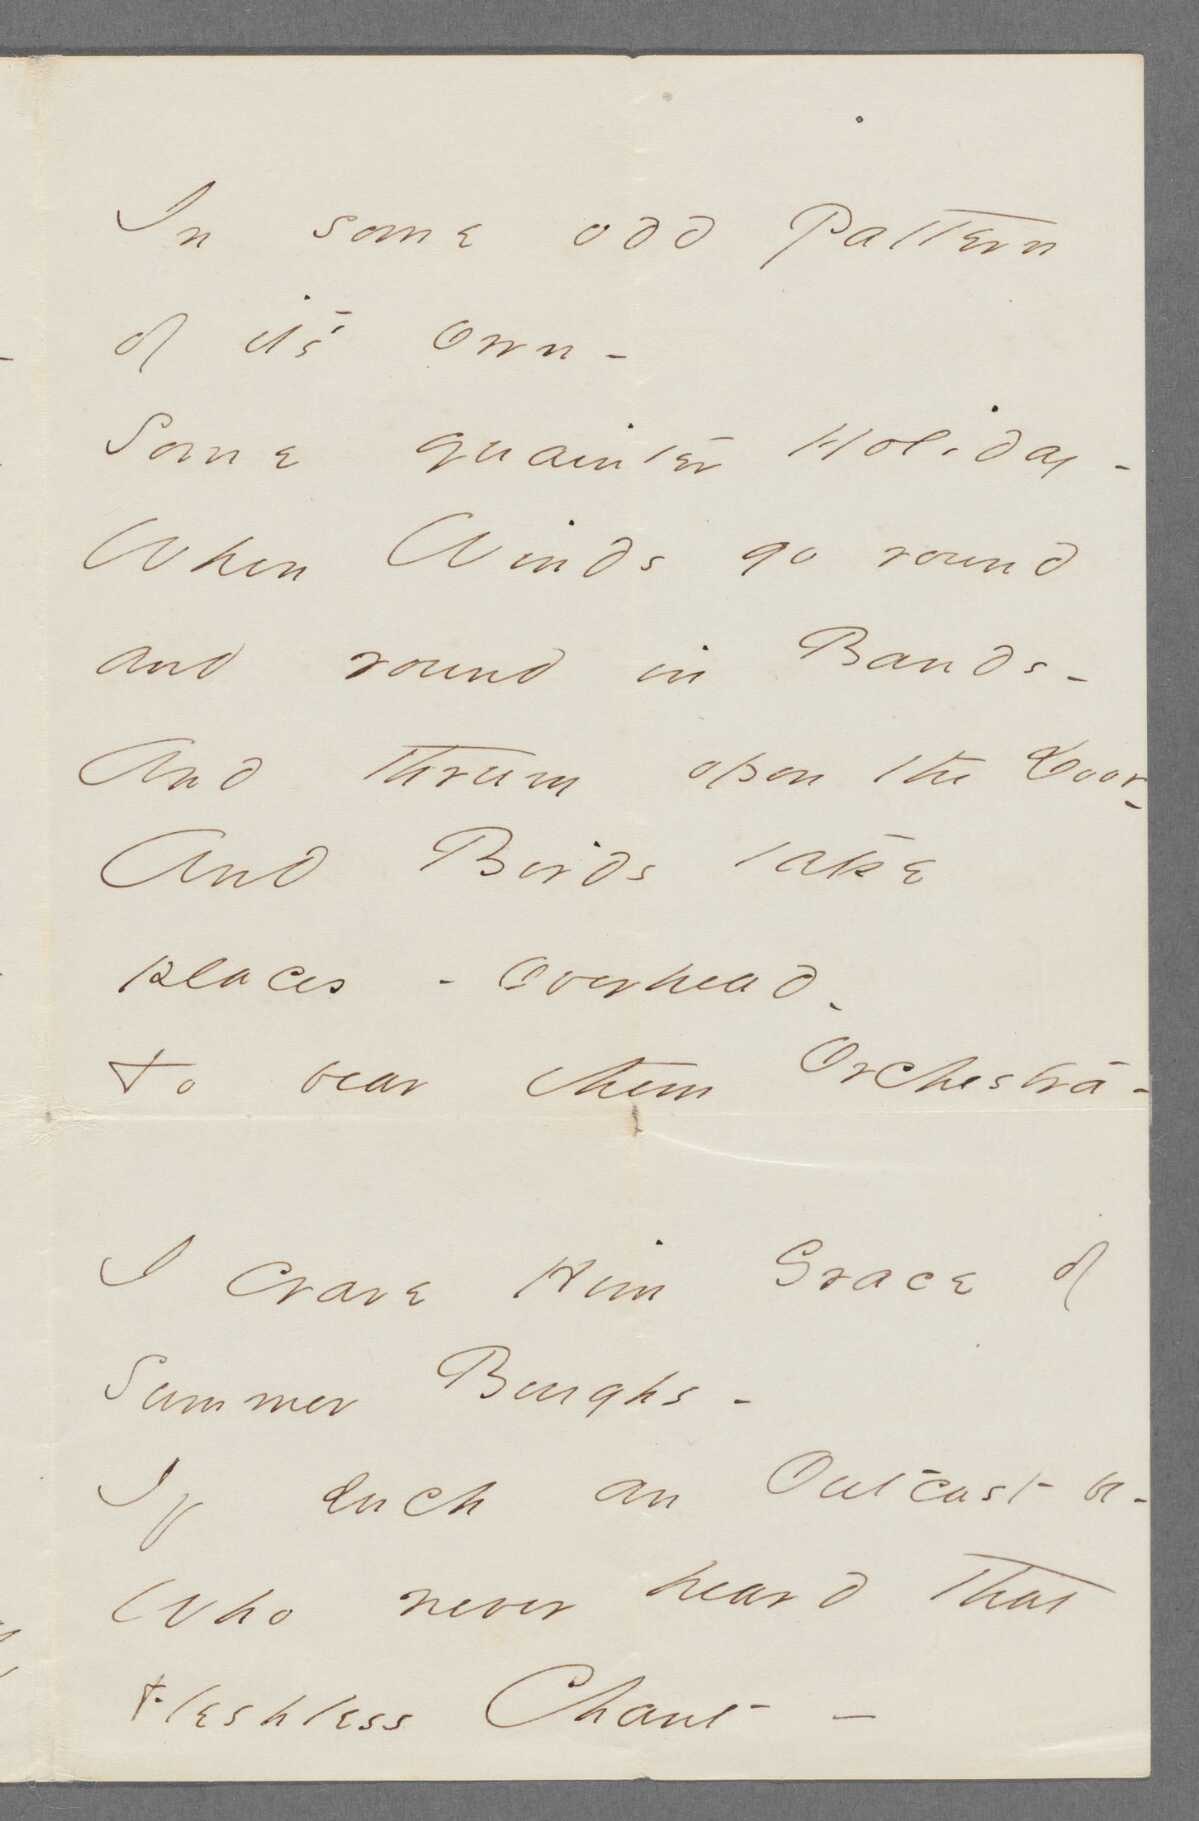 In some odd Pattern
of it's own -
Some quainter Holiday -
When Winds go round
and round in Bands -
And thrum upon the Door -
And Birds take
places - Overhead -
To bear them Orchestra -
I crave Him Grace of
Summer Boughs -
If such an Outcast be -
Who never heard that
fleshless Chant -